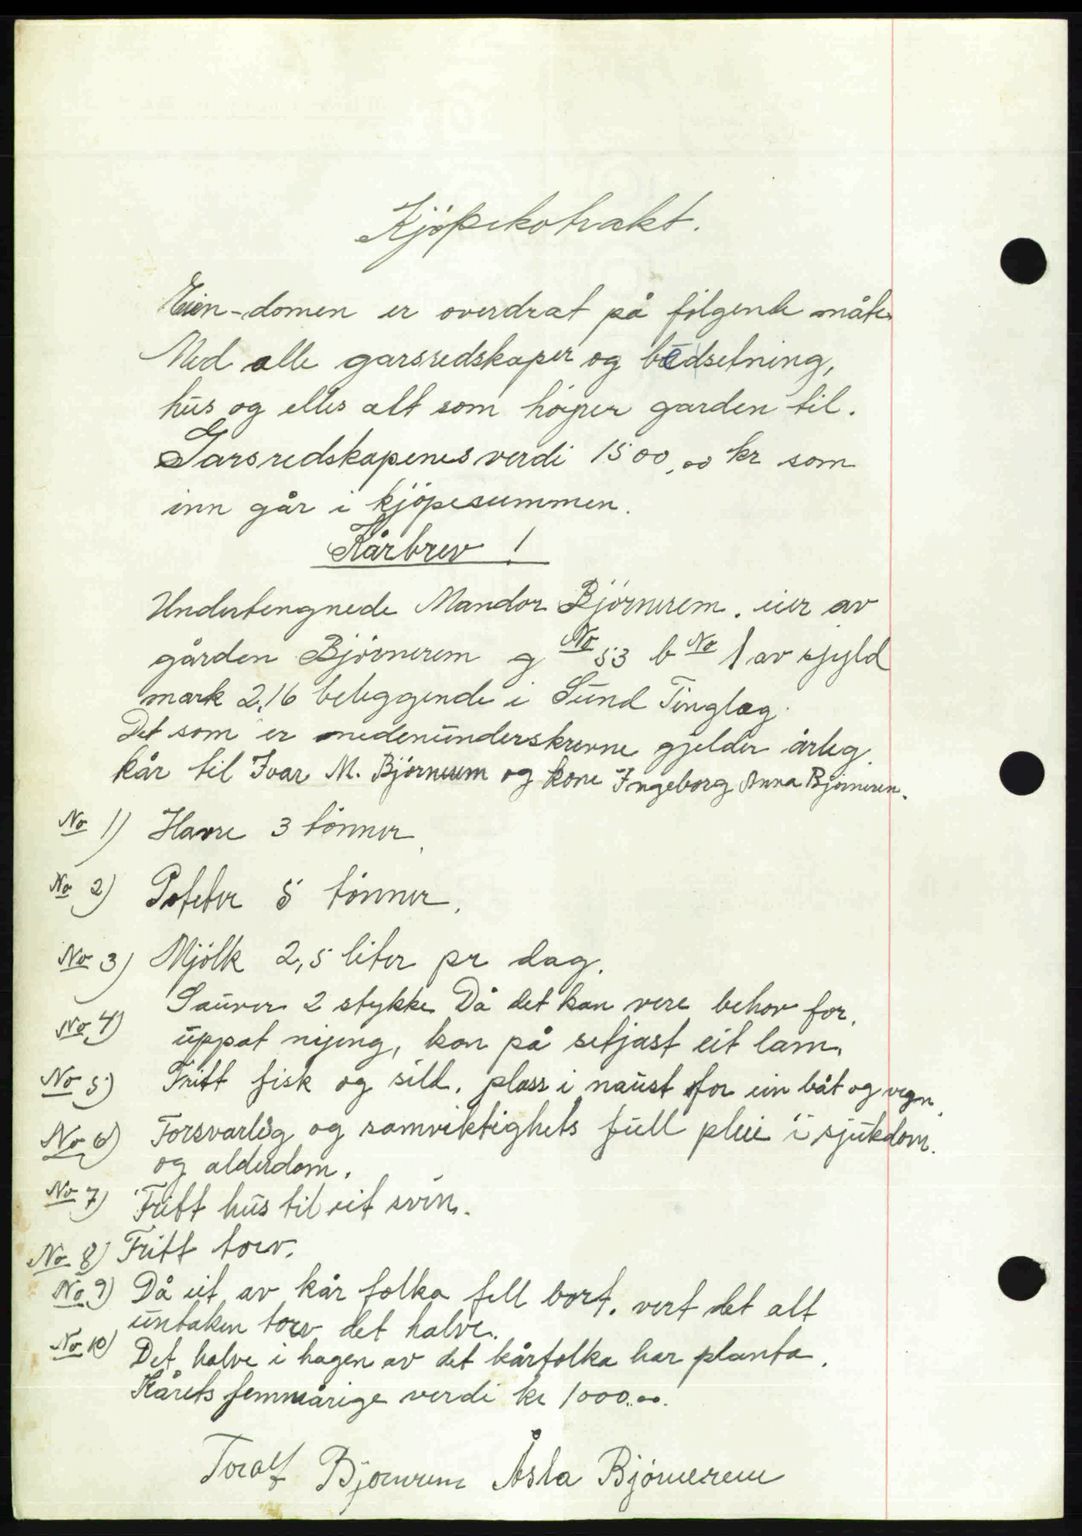 Kjöpekotrakt.
Eien-domen er overdrat på fölgende måte.
Med alle garsredskaper og bedsetning,
hus og elles alt som höyrer garden til.
Garsredskapenes verdi 1500,00 kr som
inn går i kjöpesummen.
Kårbrev !
Undertengnede Mandor Björnerem. eier av
gården Björnerem g No 53 b No 1 av sjyld
mark 2,16 beleggende i Sund Tinglag.
Det som er nedenunderskrevne gjelder årleg
kår til Ivar M. Björnerem og kone Ingeborg Anna Björnerem.
No 1) Havre 3 tönner.
No 2) Poteter 5 tönner.
No 3) Mjölk 2,5 liter pr dag.
No 4) Sauer 2 stykke Då det kan vere behov for
uppat nijing, kan på setjast eit lam.
No 5) Fritt fisk og sild. plass i naust for ein båt og vegn.
No 6) Forsvarleg og samviktighets full pleie i sjukdom
og alderdom.
No 7) Fritt hus til eit svin.
No 8) Fritt torv.
No 9) Då eit av kår folka fell bort. vert det alt
untaken torv det halve.
No 10) Det halve i hagen av det kårfolka har planta.
Kårets femmårige verdi kr 1000.00.
Toralf Björnerem Åsta Björnerem